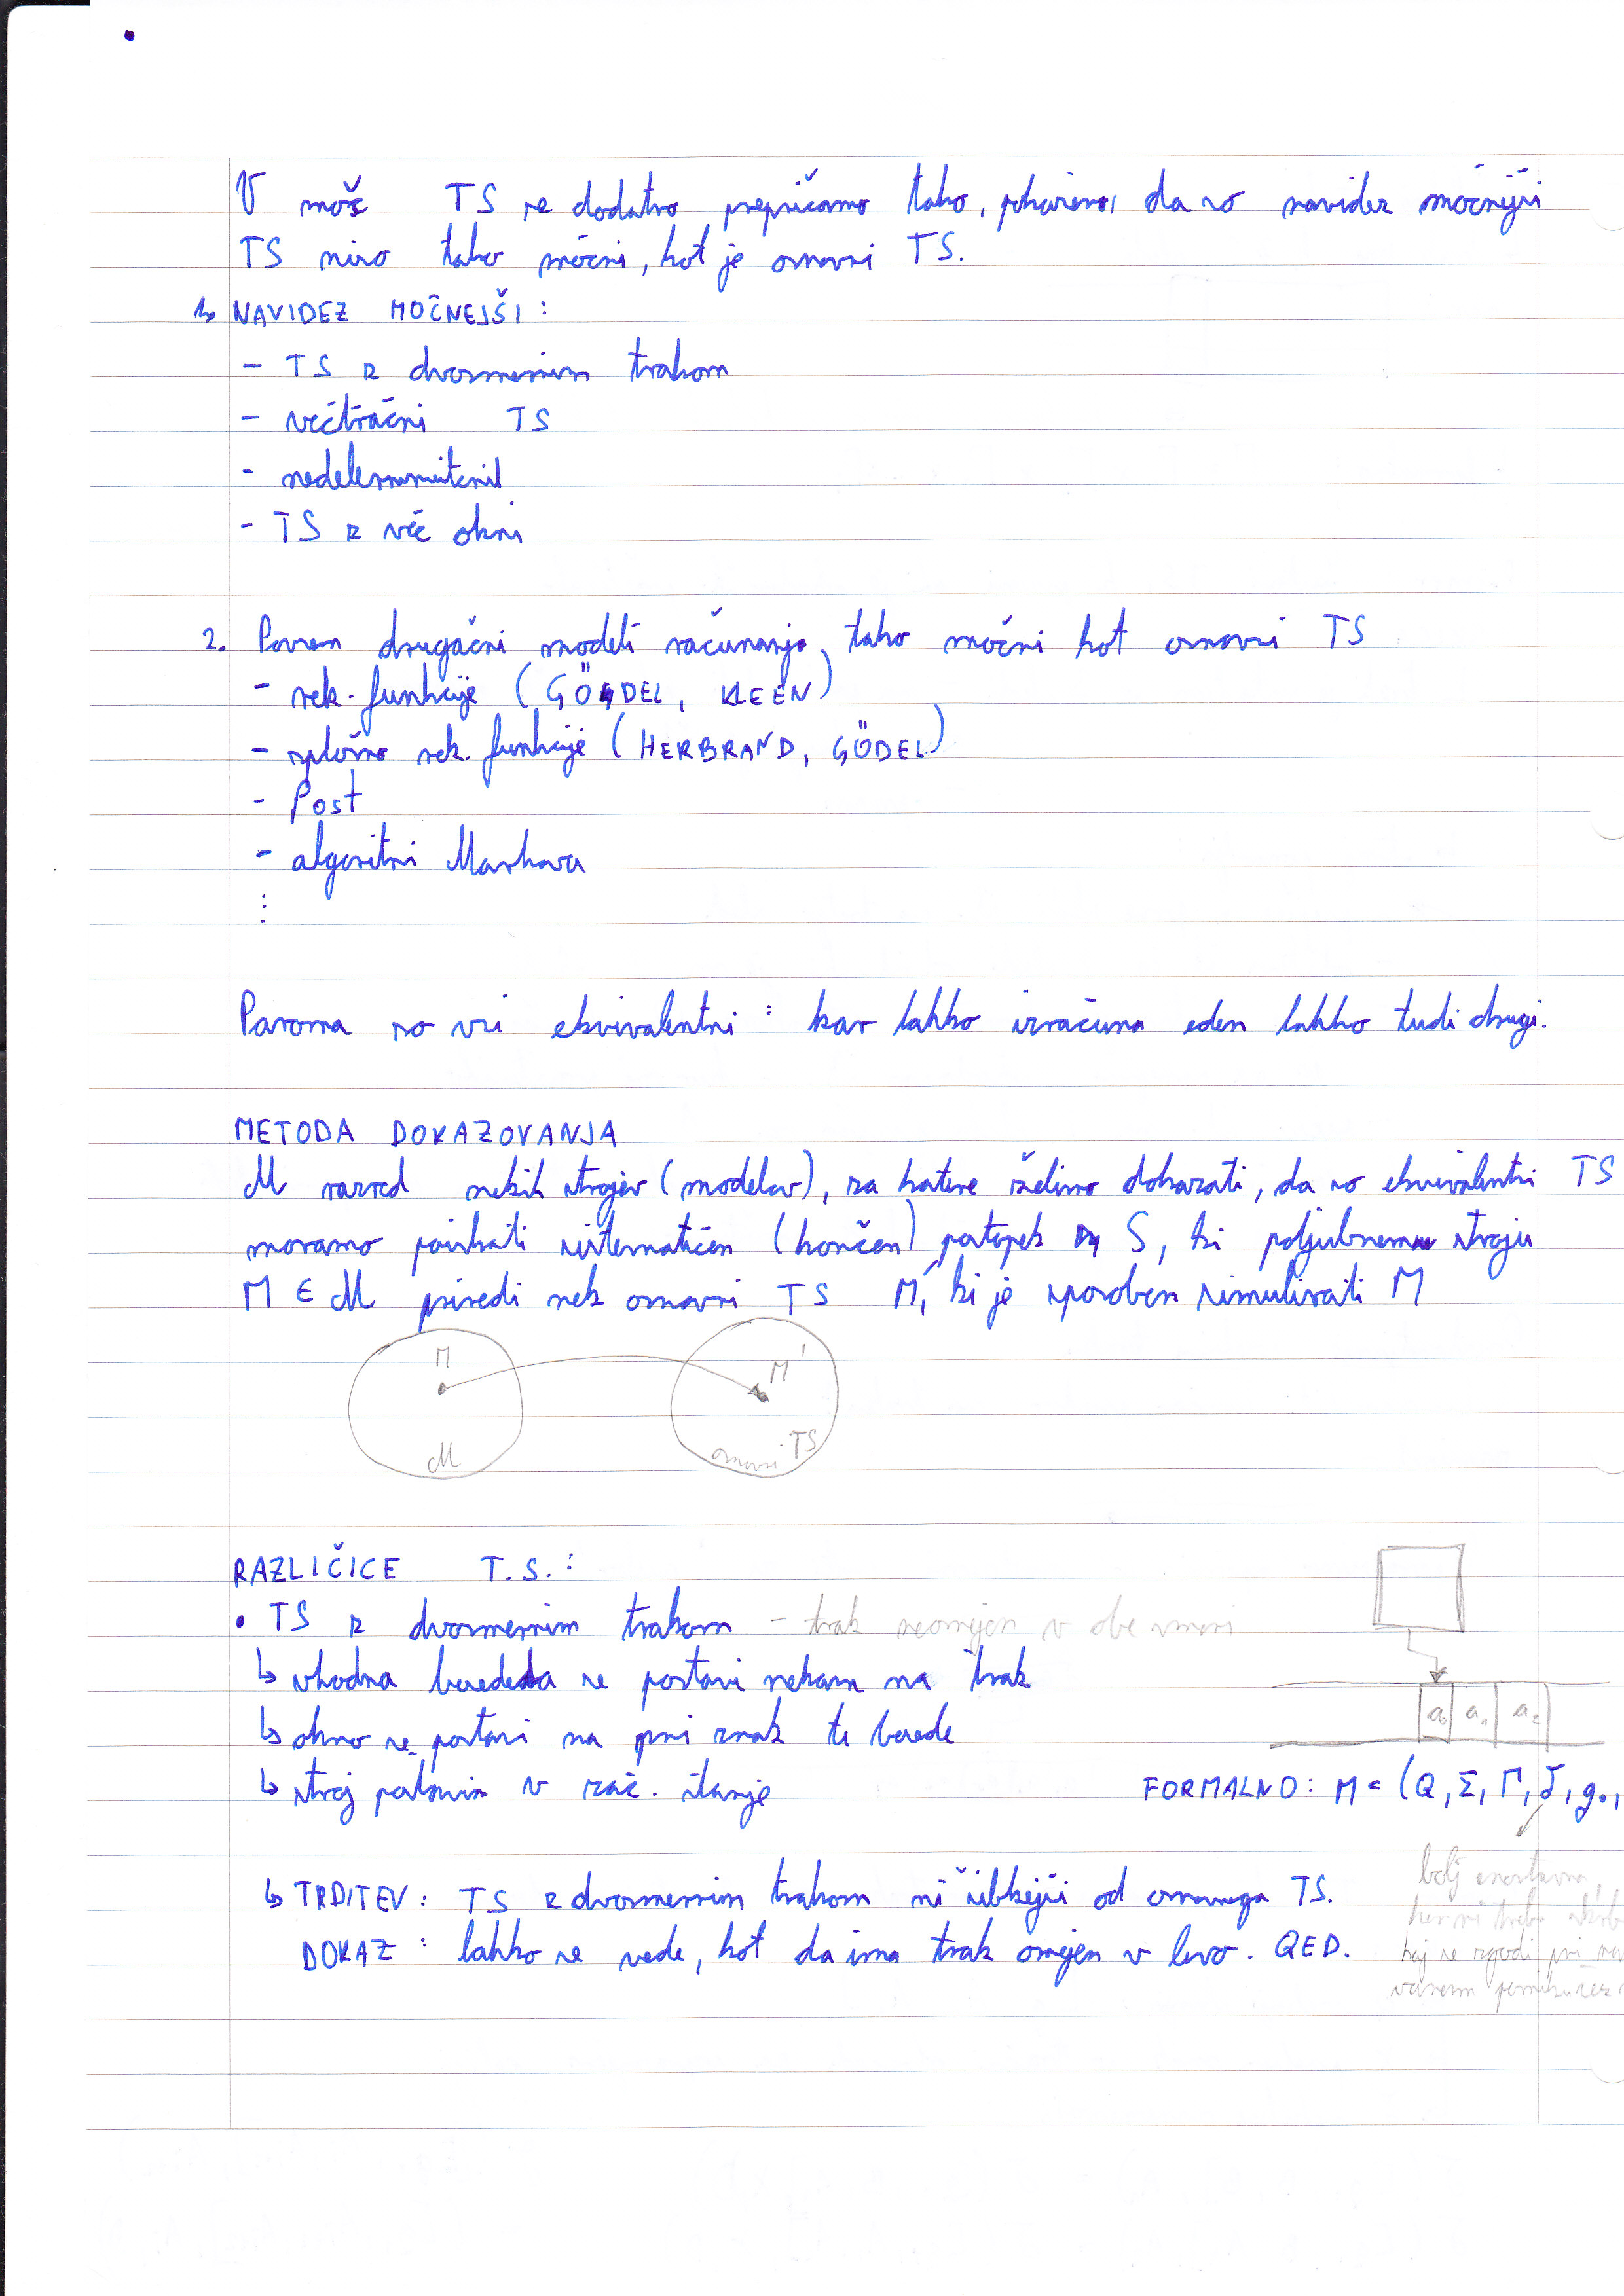 V moč TS se dodatno prepričamo tako, pokažemo, da so navidez močnejši
TS niso tako močni, kot je osnovni TS.
1. NAVIDEZ MOČNEJŠI :
- TS z dvosmernim trakom
- večtračni TS
- nedeterministični
- TS z več okni
2. Povsem drugačni modeli računanja, tako močni kot osnovni TS
- rek. funkcije (GÖDEL, KLEEN)
- splošno rek. funkcije (HERBRAND, GÖDEL)
- Post
- algoritmi Markova
⋮
Paroma so vsi ekvivalentni : kar lahko izračuna eden lahko tudi drugi.
METODA DOKAZOVANJA
M razred nekih strojev (modelov), za katere želimo dokazati, da so ekvivalentni TS
moramo poiskati sistematičen (končen) postopek S, ki poljubnemu stroju
M ∈ M priredi nek osnovni TS M', ki je sposoben simulirati M
M M'
M osnovni TS
RAZLIČICE T.S. :
• TS z dvosmernim trakom - trak neomejen v obe smeri
↳ vhodna beseda se postavi nekam na trak
↳ okno se postavi na prvi znak te besede
↳ stroj postavim v zač. stanje
a₀ a₁ a₂
FORMALNO: M = (Q, Σ, Γ, δ, q₀,
↳ TRDITEV : TS z dvosmernim trakom ni šibkejši od osnovnega TS.
DOKAZ : lahko se vede, kot da ima trak omejen v levo. QED.
bolj enostavna,
ker ni treba
kaj se zgodi pri